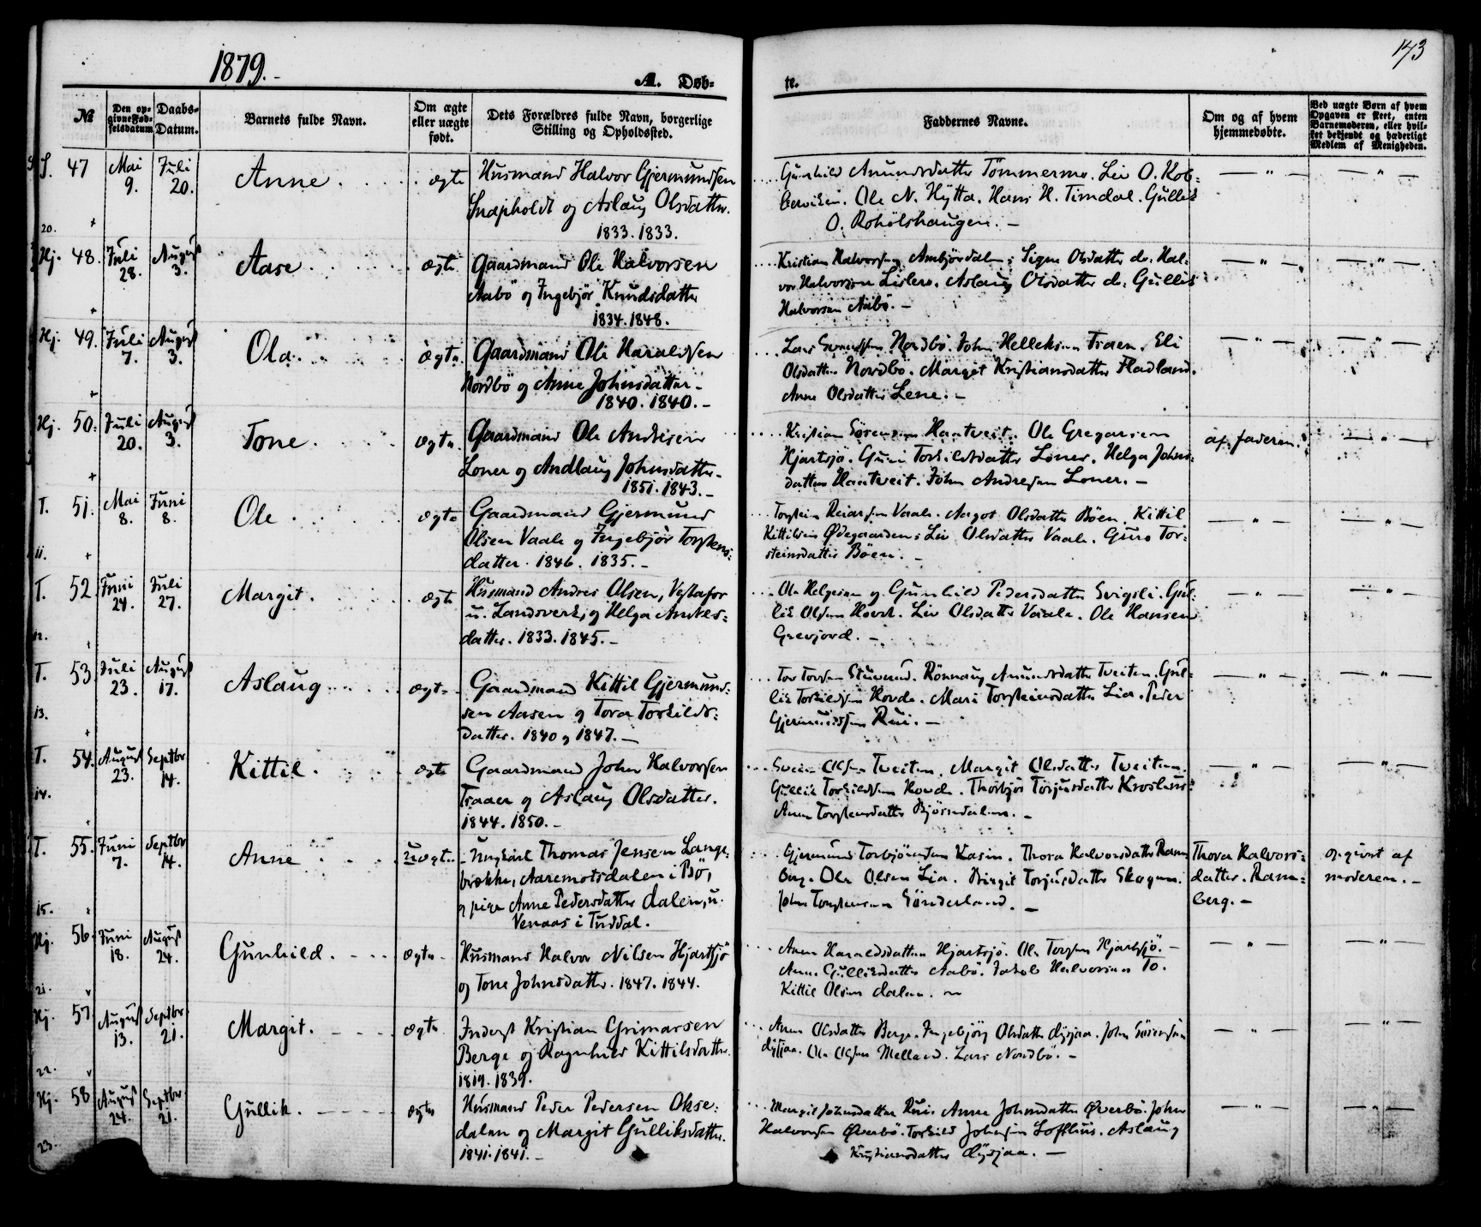 1879.
A. Døb-
te.
173
№
Den op-
givne Fød-
selsdatum
Daabs-
Datum.
Barnets fulde Navn.
Om ægte
eller uægte
født.
Dets Forældres fulde Navn, borgerlige
Stilling og Opholdssted.
Faddernes Navne.
Om og af hvem
hjemmedøbte.
Ved uægte Børn af hvem
Opgaven er skeet, enten
Barnemoderen, eller hvil-
ket bekjendt og hæderligt
Medlem af Menigheden.
S. 47 Mai 9. Juli 20. Anne ægte
Husmand Halvor Gjermundsen
og Aslaug Olsdatter.
1833. 1833.
Gunhild Amundsdatter Tømmermo. Liv O. Kob-
bervigen. Ole N. Hytta. Hans H. Timdal. Gullik
O. Roholtshaugen. —
20.
Hj. 48. Juli 28. August 3. Aase ægte
Gaardmand Ole Halvorsen
Aabø og Ingebjør Knudsdatter
1834. 1848.
Kristian Halvorsen Ambjørdalen. Signe Olsdatter do. Hal-
vor Halvorsen Lislero. Aslaug Olsdatter do. Gullik
Halvorsen Aabø. —
Hj. 49. Juli 7. August 3. Ola ægte
Gaardmand Ole Haraldsen
Nordbø og Anne Johnsdatter —
1840. 1840. —
Lars Nordbø. John Helleksen Traen. Eli
Olsdatter Nordbø. Margit Kristiansdatter Fladland.
Anne Olsdatter Lene. —
Hj. 50. Juli 20. August 3. Tone ægte
Gaardmand Ole Andresen
Loner og Andlaug Johnsdatter —
1851. 1843. —
Kristian Sørensen Hantveit. Ole Gregarsen
Hjartsjø. Guri Torkildsdatter Loner. Helga Johns-
datter Hantveit. John Andresen Loner. —
af faderen.
T. 51. Mai 8. Juni 8. Ole ægte
Gaardmand Gjermund
Olsen Vaale og Ingebjør Torsteins-
datter. 1846. 1835. —
Torstein Reiarsen Vaale. Aagot Olsdatter Bøen. Kittil
Kittilsen Ødegaarden. Liv Olsdatter Vaale. Guro Tor-
steinsdatter Bøen. —
11.
T. 52. Juni 24. Juli 27. Margit. ægte
Husmand Andres Olsen, Vestafor
u. Landsverk, og Helga Andres-
datter. 1833. 1845. —
Ole Helgesen og Gunhild Pedersdatter Svigsli. Gul-
lik Olsen Hovde. Liv Olsdatter Vaale. Ole Hansen
Grevjord. —
12.
T. 53. Juli 23. August 17. Aslaug ægte
Gaardmand Kittil Gjermund-
sen Aasen og Tora Torkilds-
datter. 1840 og 1847. —
Tor Torsen Stuvund. Rønnaug Amundsdatter Tveiten. Gul-
lik Torkildsen Hovde. Mari Torsteinsdatter Lia. Peder
Gjermundsen Rui. —
13.
T. 54. August 23. Septbr 14. Kittil. ægte
Gaardmand John Halvorsen
Traaer og Aslaug Olsdatter.
1844. 1850. —
Svein Olsen Tveiten. Margit Olsdatter Tveiten.
Gullik Torkildsen Hovde. Thorbjør Torjusdatter
Anne Torsteinsdatter Bjørndalen. —
14.
T. 55. Juni 7. Septbr 14. Anne uægte.
Ungkarl Thomas Jensen Lange-
brække, Aaremotsdalen i Bø,
og pige Anne Pedersdatter dalen, u.
Venaas i Tuddal.
Gjermund Torbjørnsen Kasin. Thora Halvorsdatter Ram-
berg. Ole Olsen Lia. Birgit Torjusdatter Skogen.
John Torsteinsen Sønderland. —
Thora Halvors-
datter. Ram-
berg. —
opgivet af
moderen. —
15.
Hj. 56. Juni 18. August 24. Gunhild. ægte
Husmand Halvor Nilsen Hjartsjø
og Tone Johnsdatter. 1847. 1844.
Anne Haraldsdatter Hjartsjø. Ole Torsen Hjartsjø. —
Anne Gulliksdatter Aabø. Jakob Halvorsen To.
Kittil Olsen dalen. —
21.
Hj. 57. August 13. Septbr 21. Margit. ægte
Inderst Kristian Grimarsen
Berge og Ragnhild Kittilsdatter.
1819. 1839.
Anne Olsdatter Berge. Ingebjørg Olsdatter Øysjaa. John Sørensen
Øysjaa. Ole Olsen Melland. Lars Nordbø. —
22.
Hj. 58. August 24. Septbr 21. Gullik. ægte
Husmand Peder Pedersen Okse-
dalen og Margit Gulliksdatter.
1841. 1841. —
Margit Johnsdatter Rui. Anne Johnsdatter Øverbø. John
Halvorsen Øverbø. Torkild Johnsen Lofthus. Aslaug
Kristiansdatter Øysjaa. —
23.